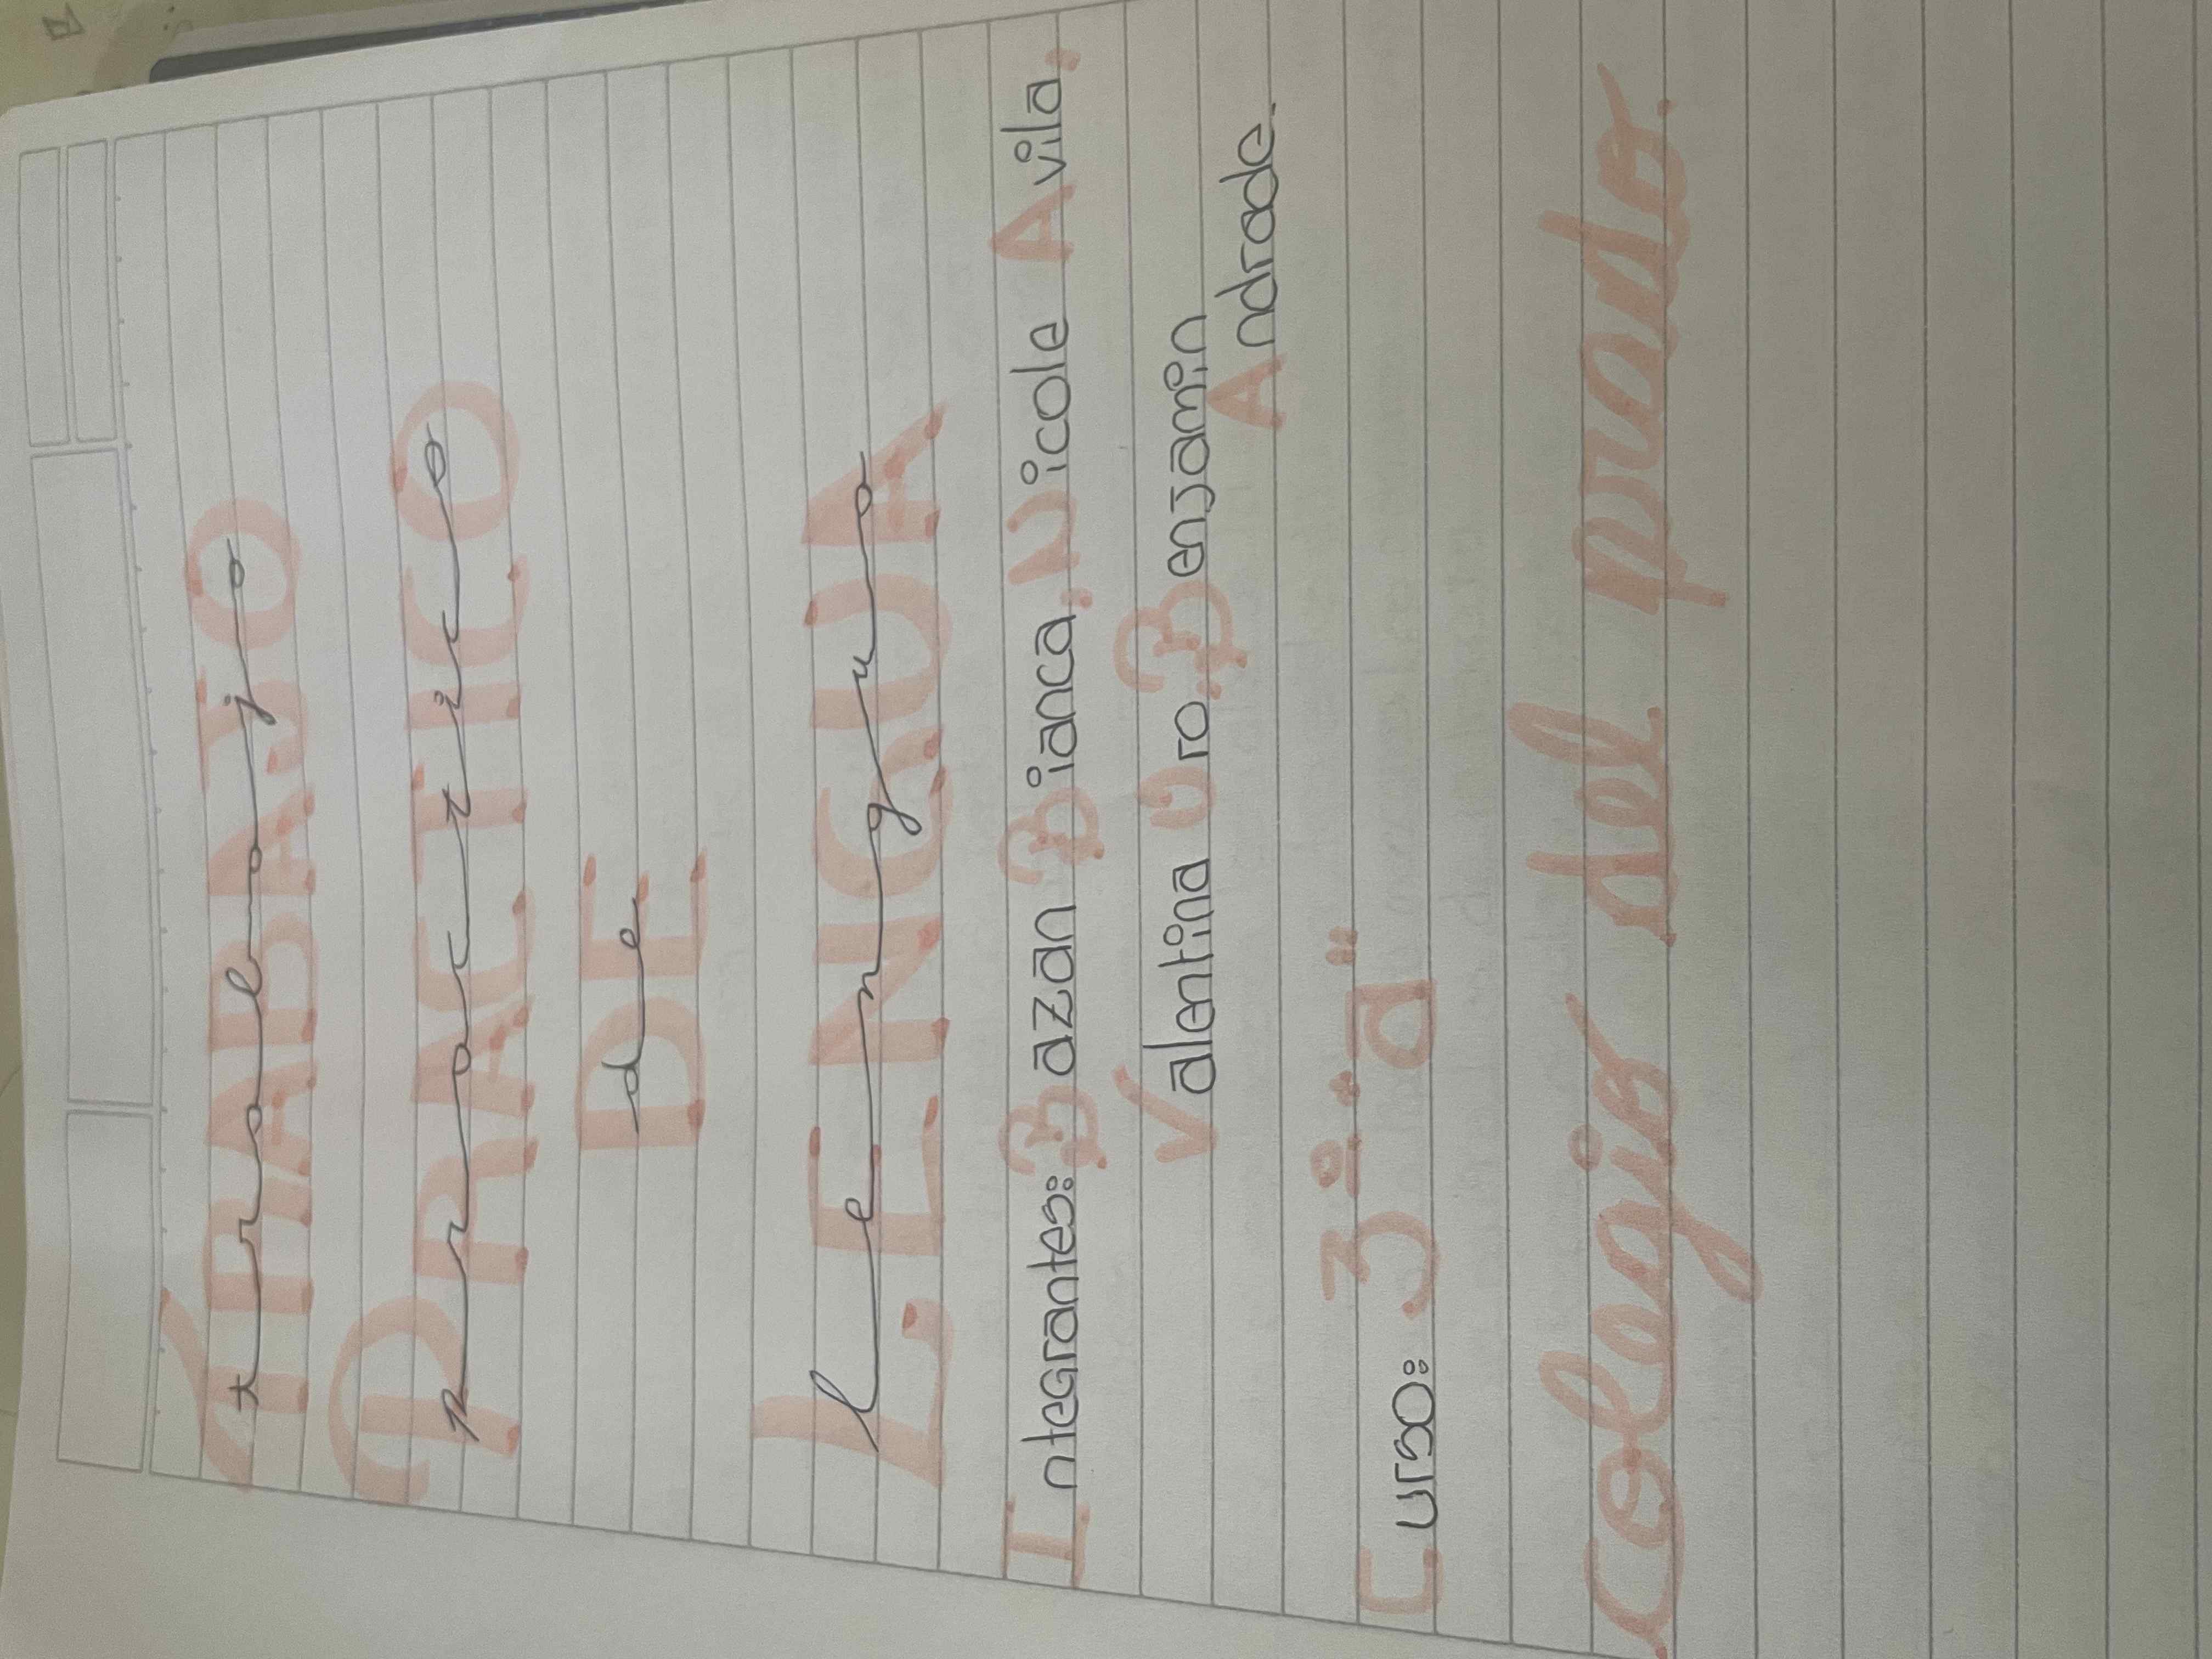 TRABAJO
trabajo
PRACTICO
practico
DE
de
LENGUA
Lengua
Integrantes: Bazan Bianca, Nicole Avila,
Valentina Oro, Benjamin
Andrade.
Curso: 3° "a"
Colegio del prado.